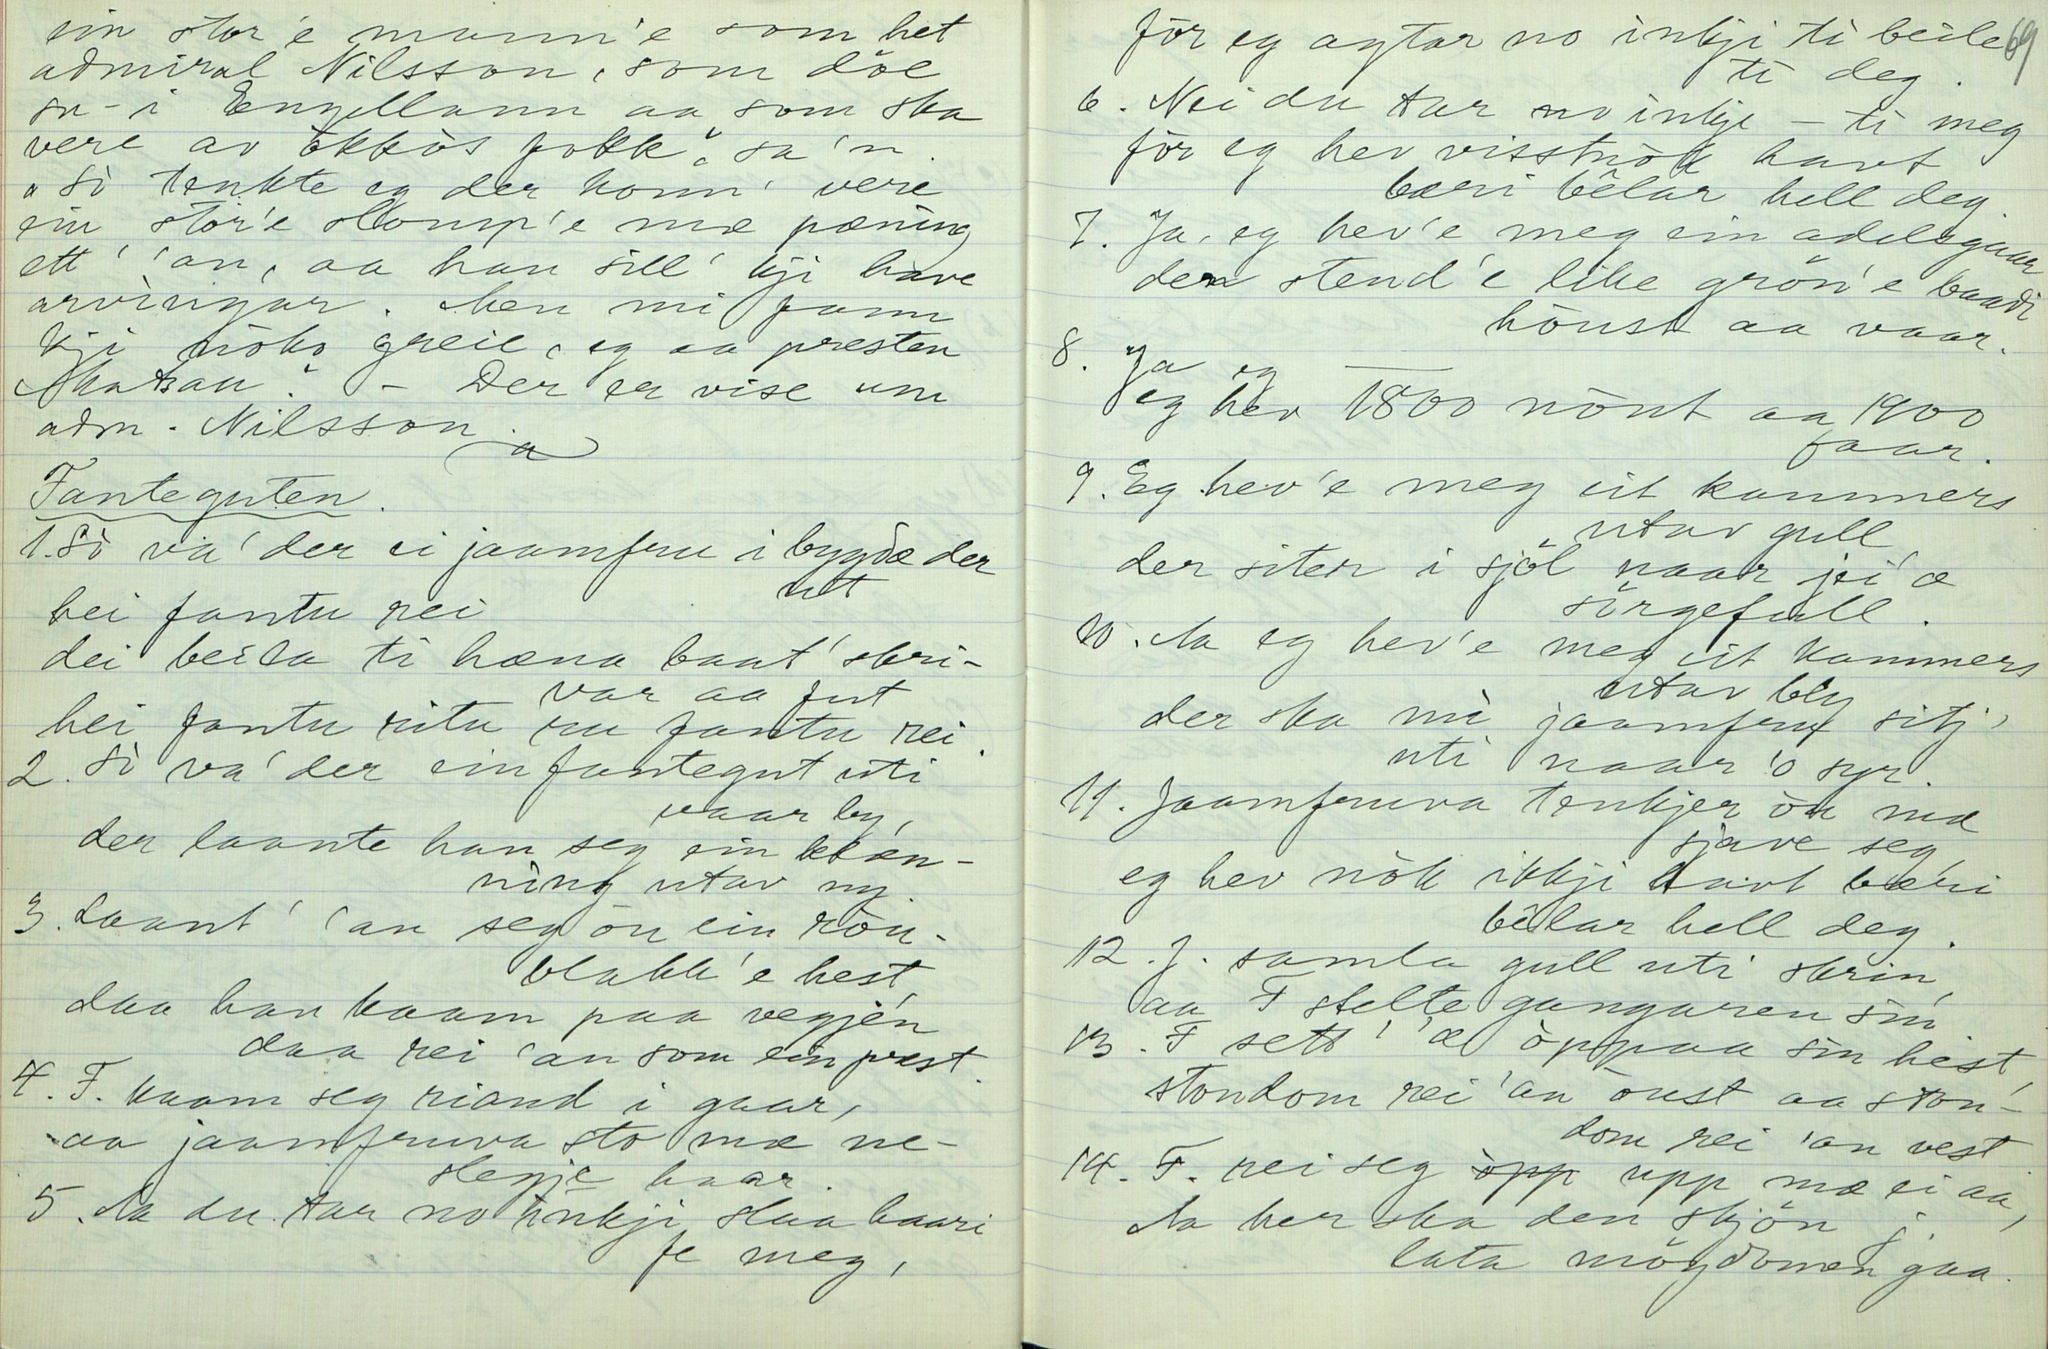 ein stor'e mann'e som het
admiral Nilsson, som döe
su - i Engellann aa som ska
vere av okkòs fokk", sa 'n.
"Sò tenkte eg der konn' vere
ein stor'e slomp'e mæ pæning
ett' 'an, aa han sill' kji have
arvingar. Men mi fann
kji nòko greie, eg aa presten
" - Der er vise um
adm. Nilsson.
Fanteguten.
1. Sò va' der ei jaamfru i bygdæ der
ut
hei fantu rei
dei beila ti hæna baat' skri-
var aa fut
hei fantu ritu ru fantu rei.
2. Sò va' der ein fantegut uti
vaar by,
der laante han seg ein klæn-
ning utav ny
3. Laant' 'an seg òu ein ròu-
blakk'e hest,
daa han kaam paa vegjén
daa rei 'an som ein prest.
4. F. kaam seg riand i gaar,
aa jaamfruva sto mæ ne-
slegje haar.
5. Aa du tar no inkji slaa haari
fe meg,
69
fòr eg agtar no inkji ti beile
ti deg.
6. Nei du tar no inkje - ti meg
fòr eg hev visstnòk havt
bæri bêlar hell deg.
7. Ja, eg hev'e meg ein adelsgaar
den stend'e like grön'e baadi
höust aa vaar.
8. Ja eg
eg hev 1800 nöut aa 1900
faar.
9. Eg hev'e meg eit kammers
utav gull
der siter i sjöl naar jei'æ
sörgefull.
10. Aa eg hev'e meg eit kammers
utav bly
der ska mi jaamfru sitj'
uti naar 'o syr.
11. Jaamfruva tenkjer òu mæ
sjave seg,
eg hev nòk ikkji havt bæri
bêlar hell deg.
12. J. samla gull uti skrin,
aa F stelte gangaren sin
13. F sett' 'æ òppaa sin hest,
stondom rei 'an öust aa ston-
dom rei 'an vest.
14. F. rei seg òpp upp mæ ei aa,
Aa her ska den skjön j.
lata mögdomen gaa.